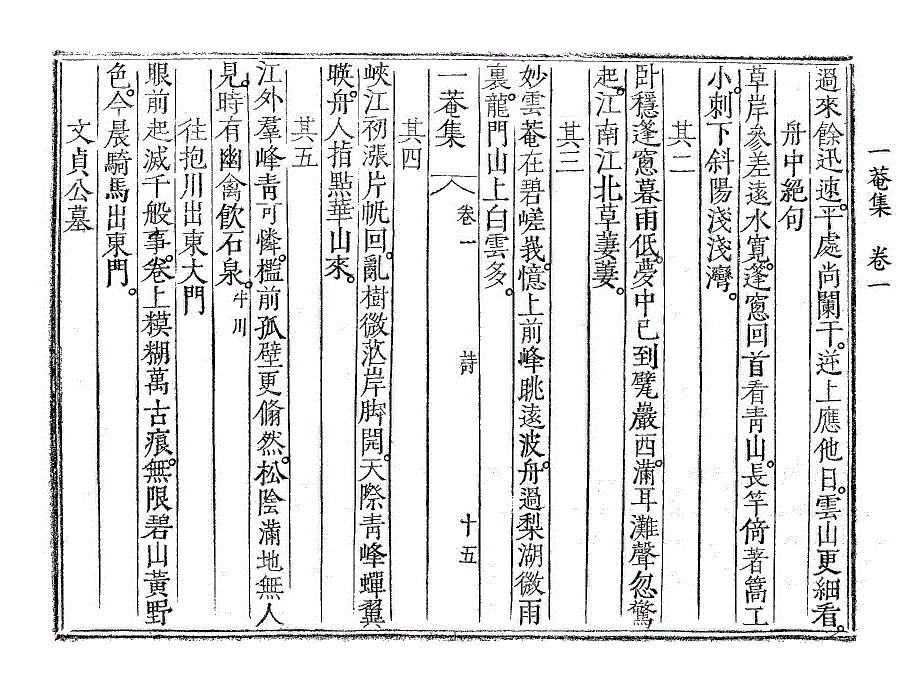 一菴集　卷一
過來餘迅速。平處尚闌干。逆上應他日。雲山更細看。
舟中絶句
草岸參差遠水寬。蓬窻回首看靑山。長竿倚著篙工
小。刺下斜陽淺淺灣。
其二
卧穩蓬窻暮雨低。夢中已到甓巖西。滿耳灘聲忽驚
起。江南江北草萋萋。
其三
妙雲菴在碧嵯峩。憶上前峰眺遠波。舟過梨湖微雨
裏。龍門山上白雲多。
一菴集　卷一　詩　十五
其四
峽江初漲片帆回。亂樹微茫岸脚開。天際靑峰蟬翼
暎。舟人指點華山來。
其五
江外羣峰靑可憐。檻前孤壁更翛然。松陰滿地無人
見。時有幽禽飮石泉。牛川
往抱川出東大門
眼前起滅千般事。卷上糢糊萬古痕。無限碧山黃野
色。今晨騎馬出東門。
文貞公墓